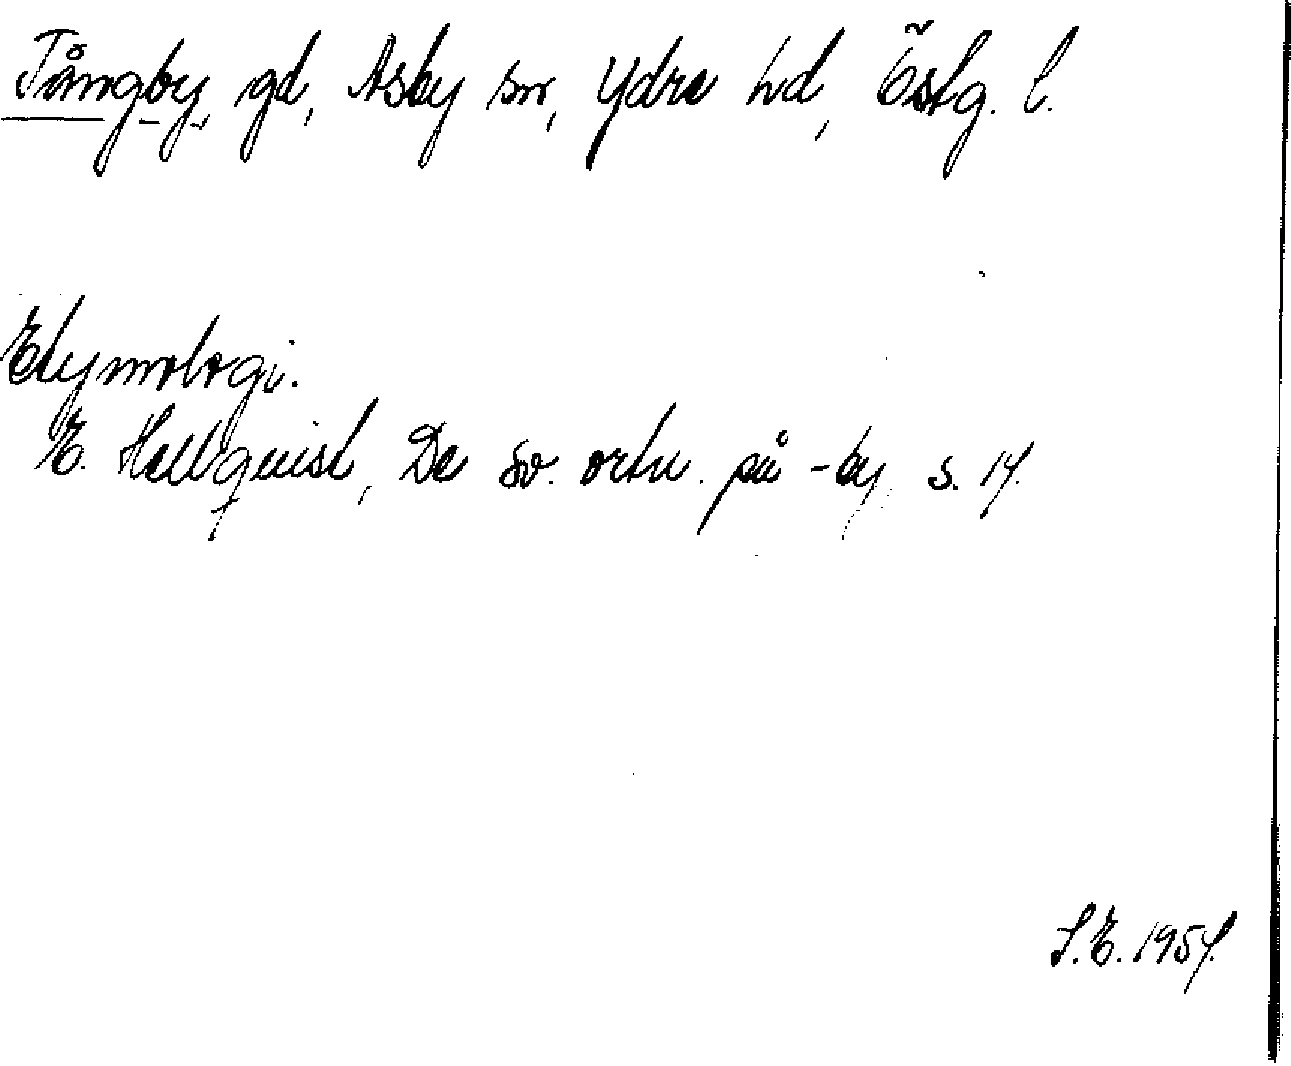 Tångby, gd, Asby sn, Ydre hd, Östg. l.
Etymologi.
E. Hellquist, De sv. ortn. på -by, s. 14.
S.E. 1954.